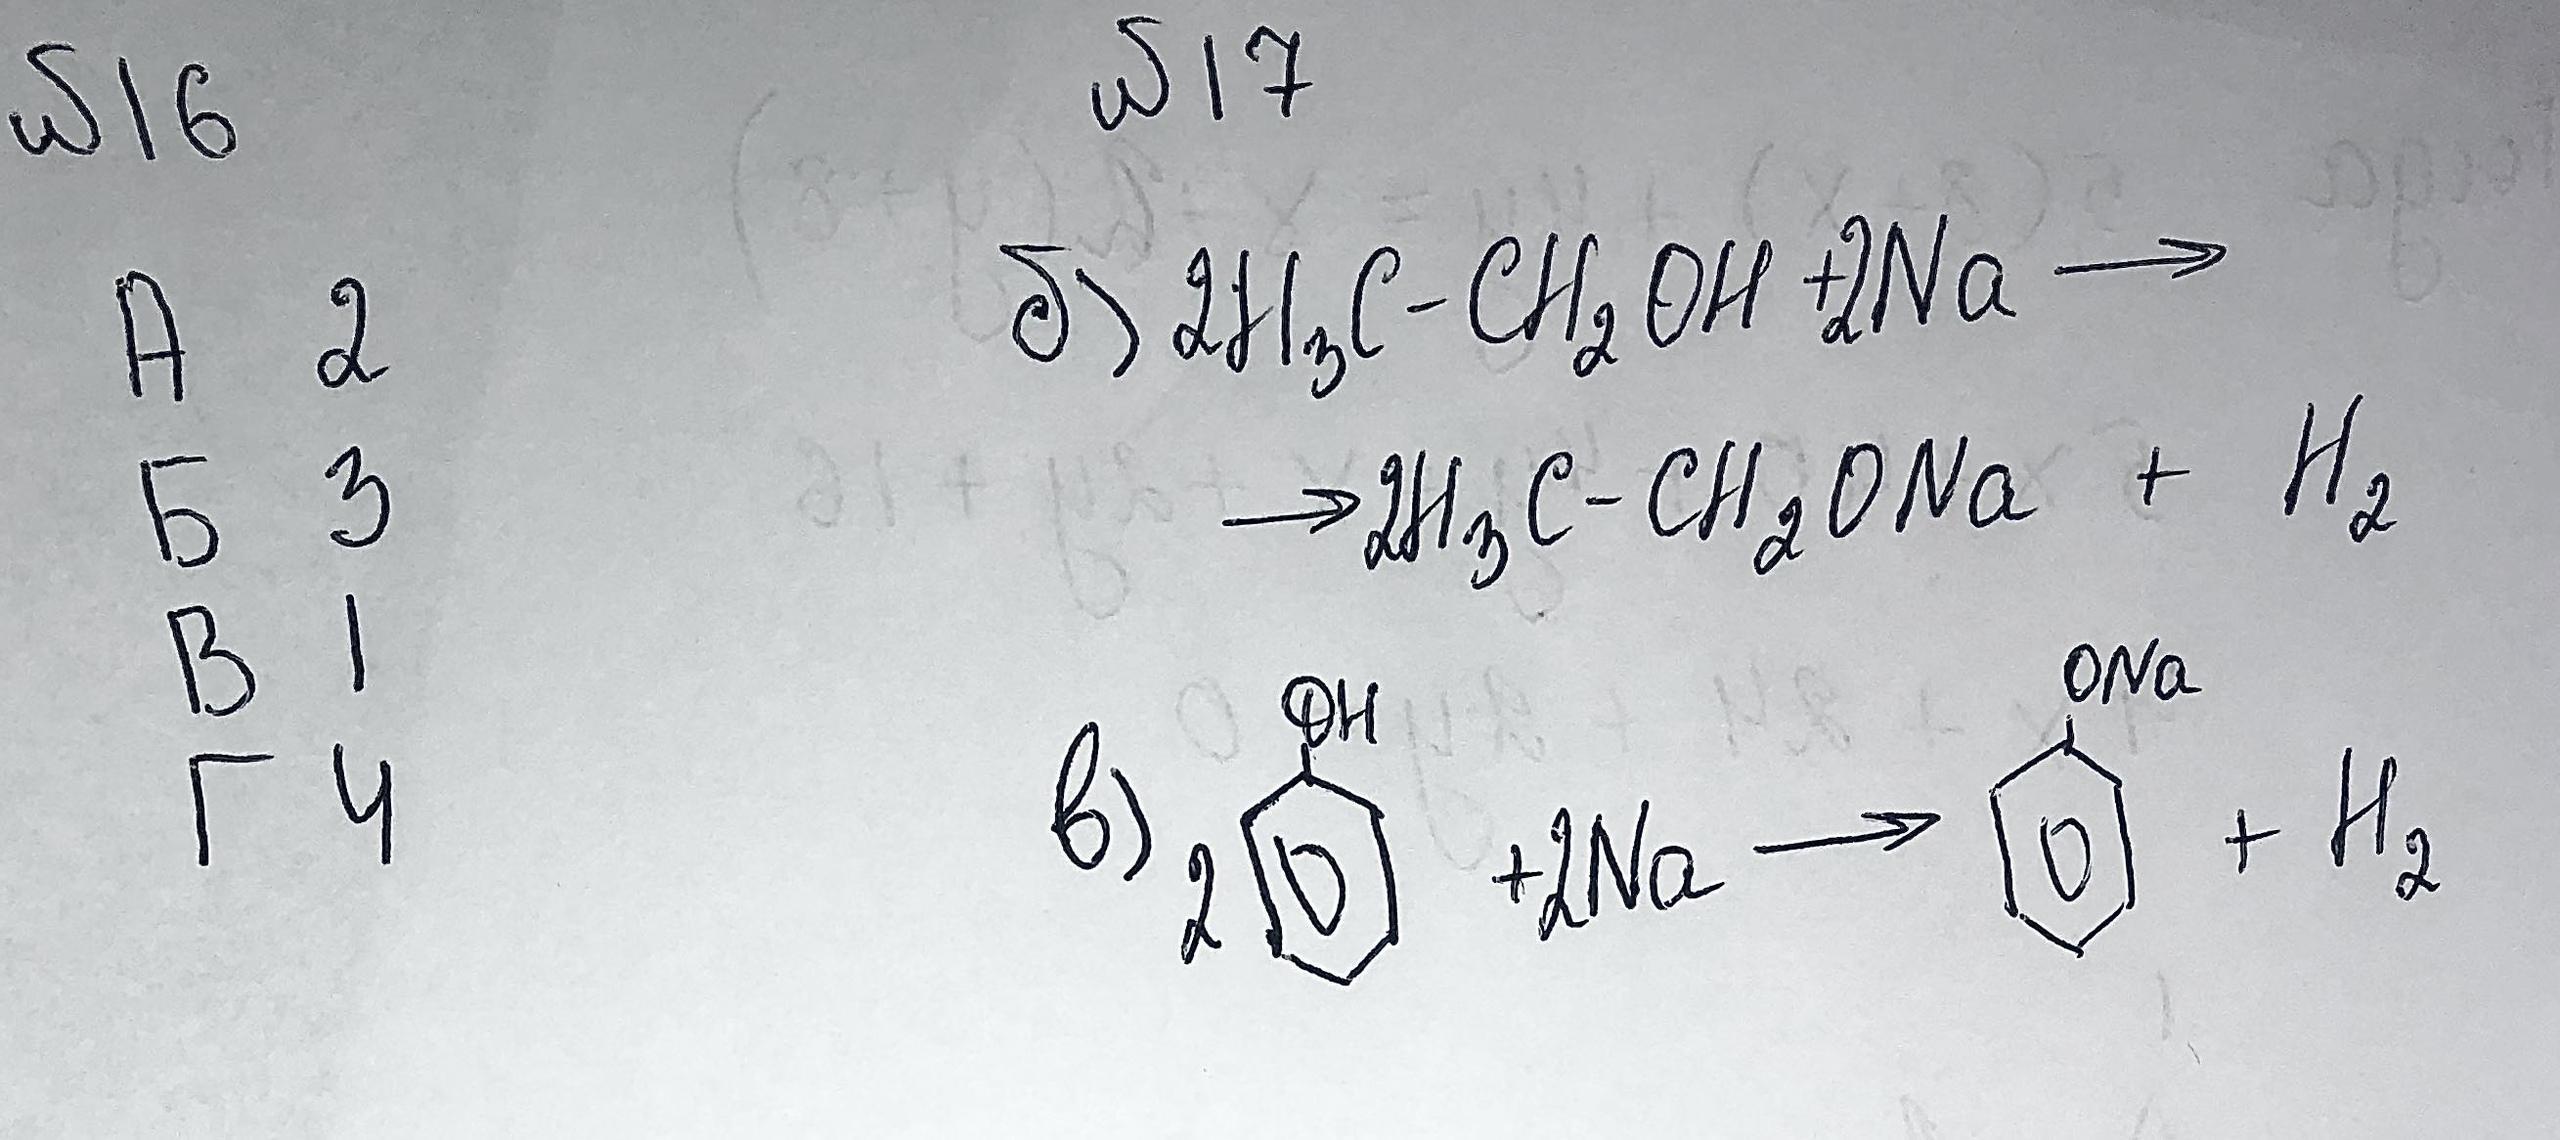 №16
А 2
Б 3
В 1
Г 4
№17
б) 2H₃C-CH₂OH+2Na →
→2H₃C-CH₂ONa + H₂
OH ONa
в) 2 +2Na → + H₂